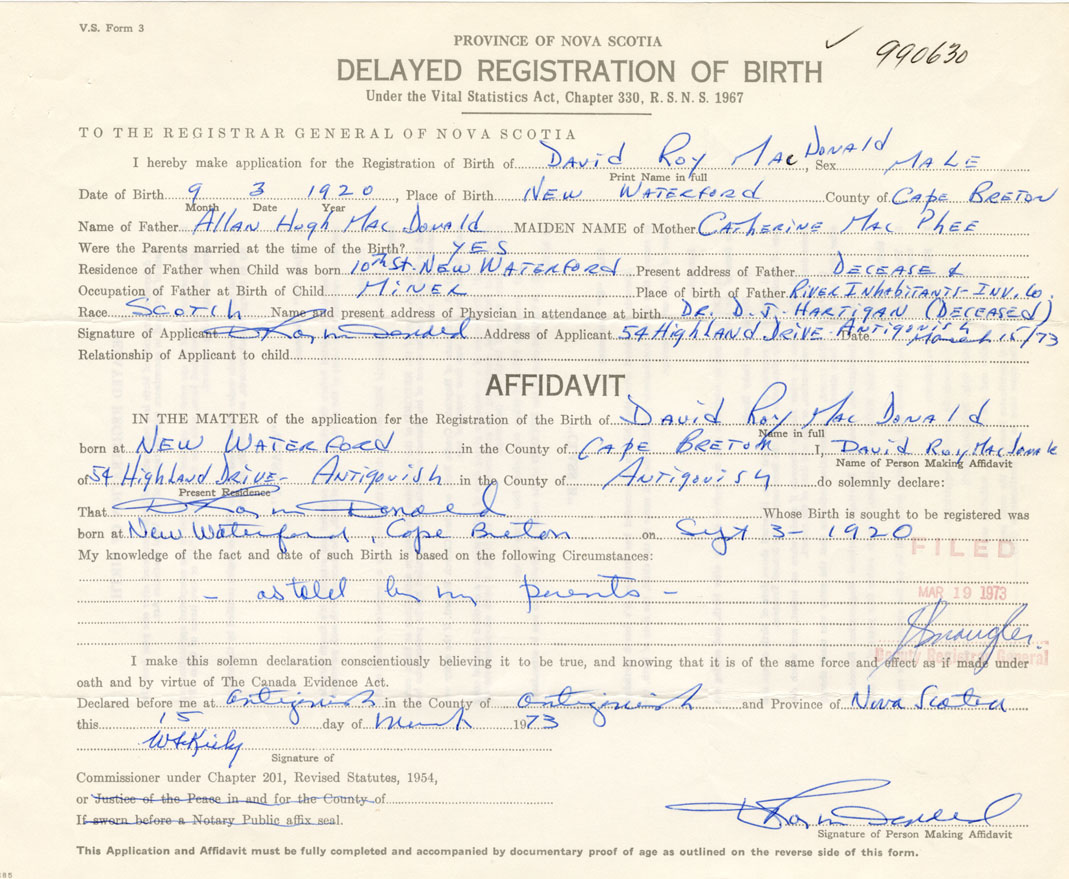 V.S. Form 3
PROVINCE OF NOVA SCOTIA
990630
DELAYED REGISTRATION OF BIRTH
Under the Vital Statistics Act, Chapter 330, R. S. N. S. 1967
TO THE REGISTRAR GENERAL OF NOVA SCOTIA
I hereby make application for the Registration of Birth of David Roy MacDonald, Sex MALE
Print Name in full
Date of Birth 9 3 1920, Place of Birth NEW WATERFORD County of CAPE BRETON
Month Date Year
Name of Father Allan Hugh MacDonald MAIDEN NAME of Mother CATHERINE MAC PHEE
Were the Parents married at the time of the Birth? YES
Residence of Father when Child was born 10th St. NEW WATERFORD Present address of Father DECEASED
Occupation of Father at Birth of Child MINER Place of birth of Father RIVER INHABITANTS - INV. Co.
Race SCOTCH Name and present address of Physician in attendance at birth DR. D. J. HARTIGAN (DECEASED)
Signature of Applicant Address of Applicant 54 Highland DRIVE - ANTIGONISH Date March 15/73
Relationship of Applicant to child
AFFIDAVIT
IN THE MATTER of the application for the Registration of the Birth of David Roy MacDonald
Name in full
born at NEW WATERFORD in the County of CAPE BRETON I, David Roy MacDonald
Name of Person Making Affidavit
of 54 Highland DRIVE - ANTIGONISH in the County of ANTIGONISH do solemnly declare:
Present Residence
That Whose Birth is sought to be registered was
born at New Waterford, Cape Breton on Sept 3 - 1920
My knowledge of the fact and date of such Birth is based on the following Circumstances:
FILED
- as told by my parents -
MAR 19 1973
Deputy Registrar General
I make this solemn declaration conscientiously believing it to be true, and knowing that it is of the same force and effect as if made under
oath and by virtue of The Canada Evidence Act.
Declared before me at Antigonish in the County of Antigonish and Province of Nova Scotia
this 15 day of March 1973
Signature of
Commissioner under Chapter 201, Revised Statutes, 1954,
or Justice of the Peace in and for the County of
If sworn before a Notary Public affix seal.
Signature of Person Making Affidavit
This Application and Affidavit must be fully completed and accompanied by documentary proof of age as outlined on the reverse side of this form.